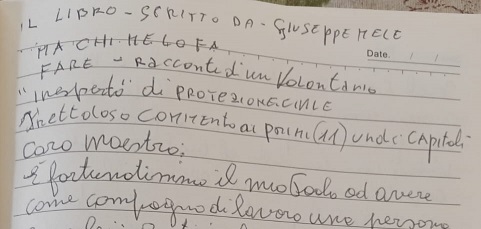 IL LIBRO - SCRITTO DA - GIUSEPPE MELE
MA CHI ME LO FA
Date.
FARE - Racconto d'un Volontario
"inesperto" di PROTEZIONE CIVILE
COMMENTO ai primi (11) undici CAPitoli
Caro maestro;
È fortunatissimo il mio ad avere
come compagno di lavoro una persona